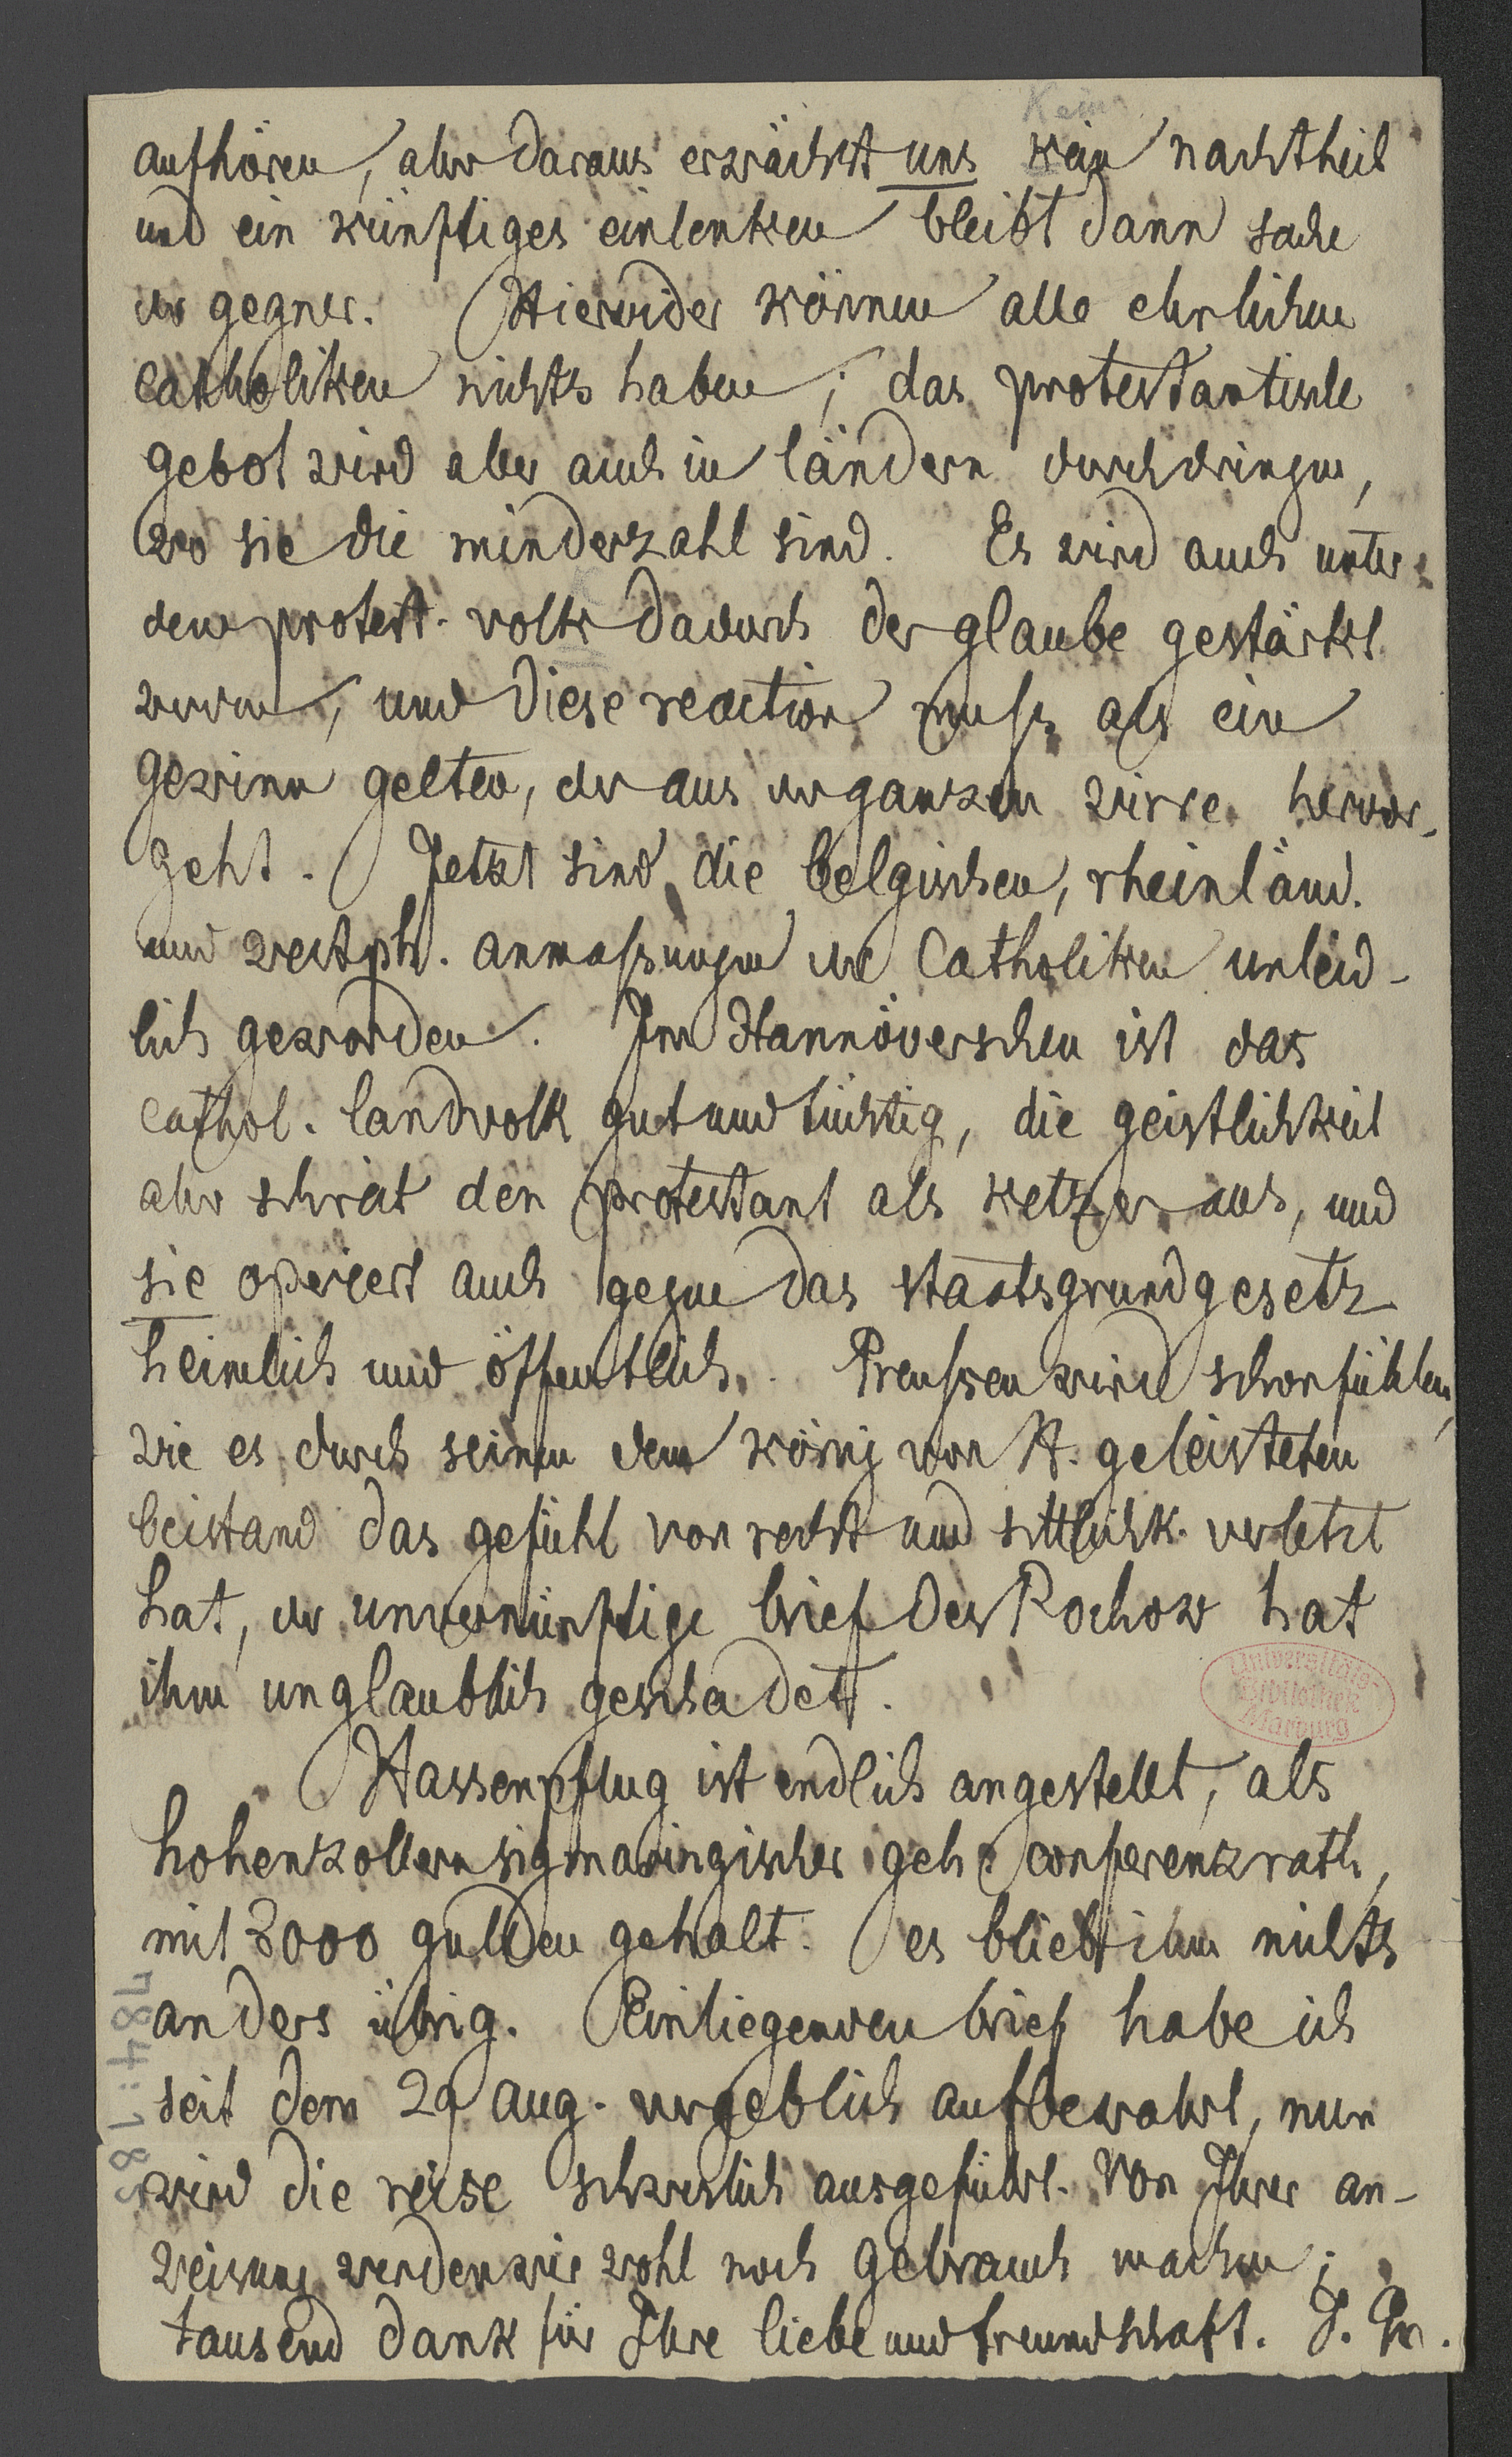 Kein
aufhören, aber daraus erwächst uns kein nachtheil
und ein künftiges einlenken bleibt dann sache
der gegner. Hierwider können alle ehrlichen
catholiken nichts haben; das protestantische
gebot wird aber auch in ländern durchdringen,
wo sie die minderzahl sind. Es wird auch unter
dem protest. volk dadurch der glaube gestärkt
werden, und diese reaction muß als ein
gewinn gelten, der aus der ganzen wirre hervor-
geht. Jetzt sind die belgischen, rheinländ.
und westph. anmaßungen der Catholiken unleid-
lich geworden. Im Hannöverschen ist das
cathol. landvolk gut und tüchtig, die geistlichkeit
aber schreit den protestant als ketzer aus, und
sie operiert auch gegen das staatsgrundgesetz
heimlich und öffentlich. Preußen wird schon fühlen,
wie es durch seinen dem könig von H. geleisteten
beistand das gefühl von recht und sittlichk. verletzt
hat, der unvernünftige brief des Rochow hat
ihm unglaublich geschadet.
Universitäts-
Bibliothek
Marburg
Hassenpflug ist endlich angestellt, als
hohenzollernsigmaringischer geh. conferenzrath,
mit 3000 gulden gehalt. es bliebt ihm nichts
anders übrig. Einliegenden brief habe ich
seit dem 29 aug. vergeblich aufbewahrt, nun
wird die reise schwerlich ausgeführt. Von Ihrer an-
weisung werden wir wohl noch gebrauch machen;
tausend dank für Ihre liebe und freundschaft. J. Gr.
784:185